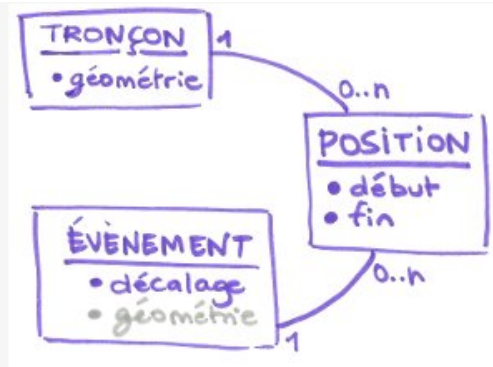 TRONÇON
• géométrie
1
0..n
POSITION
• début
• fin
0..n
ÉVÈNEMENT
• décalage
• géométrie
1